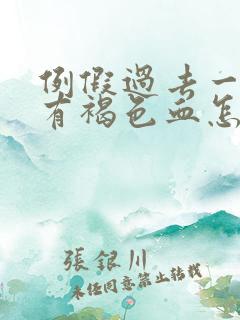 例假過去一
有褐色血怎
張銀川
未经同意禁止转载